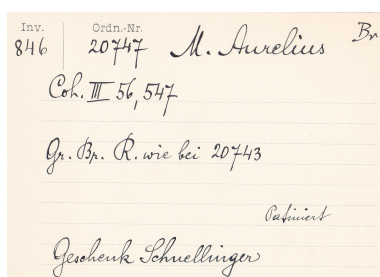 Inv. Ordn.-Nr.
846 20747 M. Aurelius Br
Coh. III 56, 547
Gr. Br. R. wie bei 20743
Patiniert
Geschenk Schnellinger